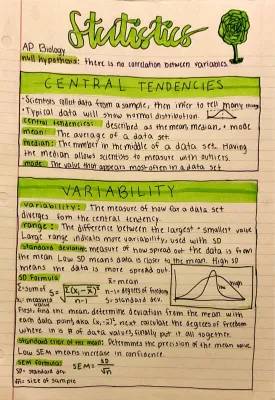 Statistics
AP Biology
null hypothesis: there is no correlation between variables.
CENTRAL TENDENCIES
• Scientists collect data from a sample, then infer to tell many things
• Typical data will show normal distribution
central tendencies: described as the mean, median, + mode
mean: The average of a data set.
median: The number in the middle of a data set. Having
the median allows scientists to measure with outliers.
mode: The value that appears most often in a data set
VARIABILITY
variability: The measure of how far a data set
diverges from the central tendency.
range: The difference between the largest + smallest value
Large range indicates more variability; used with SD
standard deviation: measure of how spread out the data is from
the mean. Low SD means data is closer to the mean. High SD
means the data is more spread out.
SD Formula
Σ=sum of
xᵢ= measured value
S= √Σ(xᵢ-x̄)²/n-1
x̄=mean
n-1=degrees of freedom
S=standard dev.
low
high
First, find the mean, determine deviation from the mean with
each data point, aka (xᵢ-x̄)², next calculate the degrees of freedom
where n is # of data values, finally put it all together.
standard error of the mean: Determines the precision of the mean value.
Low SEM means increase in confidence.
SEM formula:
SEM= SD/√n
SD= standard dev.
√n= size of sample